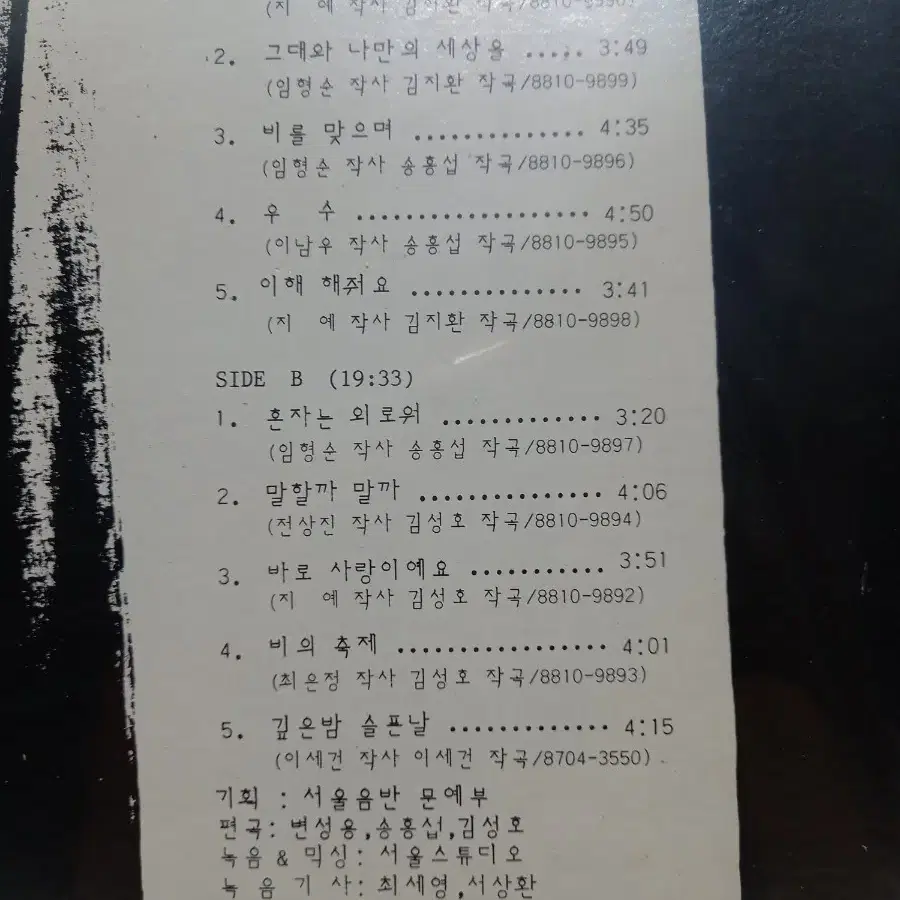 (지 예 작사 김지환 작곡/8810-9890)
2. 그대와 나만의 세상을 ..... 3:49
(임형순 작사 김지환 작곡/8810-9899)
3. 비를 맞으며 .............. 4:35
(임형순 작사 송홍섭 작곡/8810-9896)
4. 우 수 ................... 4:50
(이남우 작사 송홍섭 작곡/8810-9895)
5. 이해 해줘요 .............. 3:41
(지 예 작사 김지환 작곡/8810-9898)
SIDE B (19:33)
1. 혼자는 외로워 ............. 3:20
(임형순 작사 송홍섭 작곡/8810-9897)
2. 말할까 말까 ............... 4:06
(전상진 작사 김성호 작곡/8810-9894)
3. 바로 사랑이예요 ........... 3:51
(지 예 작사 김성호 작곡/8810-9892)
4. 비의 축제 ................. 4:01
(최은정 작사 김성호 작곡/8810-9893)
5. 깊은밤 슬픈날 ............. 4:15
(이세건 작사 이세건 작곡/8704-3550).
기획 : 서울음반 문예부
편곡: 변성용,송홍섭,김성호
녹음 & 믹싱: 서울스튜디오
녹 음 기 사: 최세영,서상환